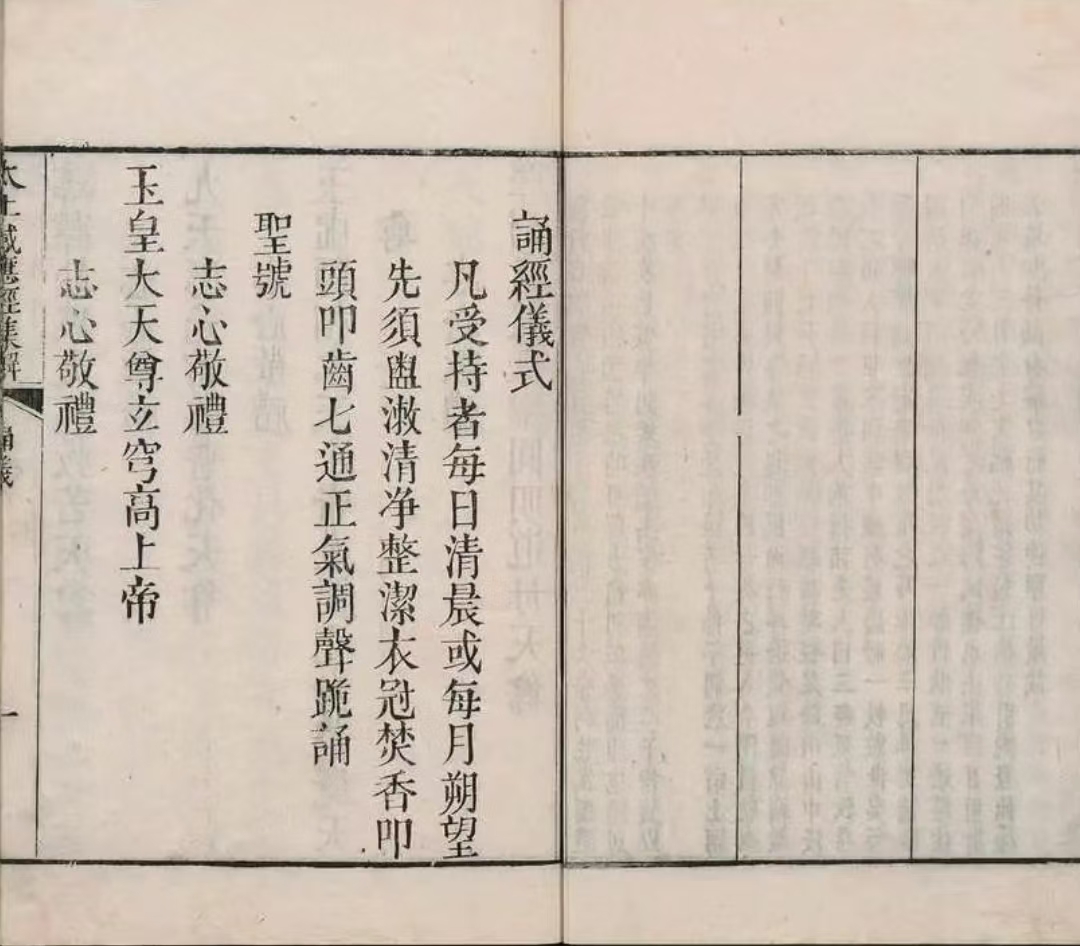 誦經儀式
凡受持者每日清晨或每月朔望
先須盥潄清净整潔衣冠焚香叩
頭叩齒七通正氣調聲跪誦
聖號
志心敬禮
玉皇大天尊玄穹高上帝
志心敬禮
太上感應經集解 誦儀 一